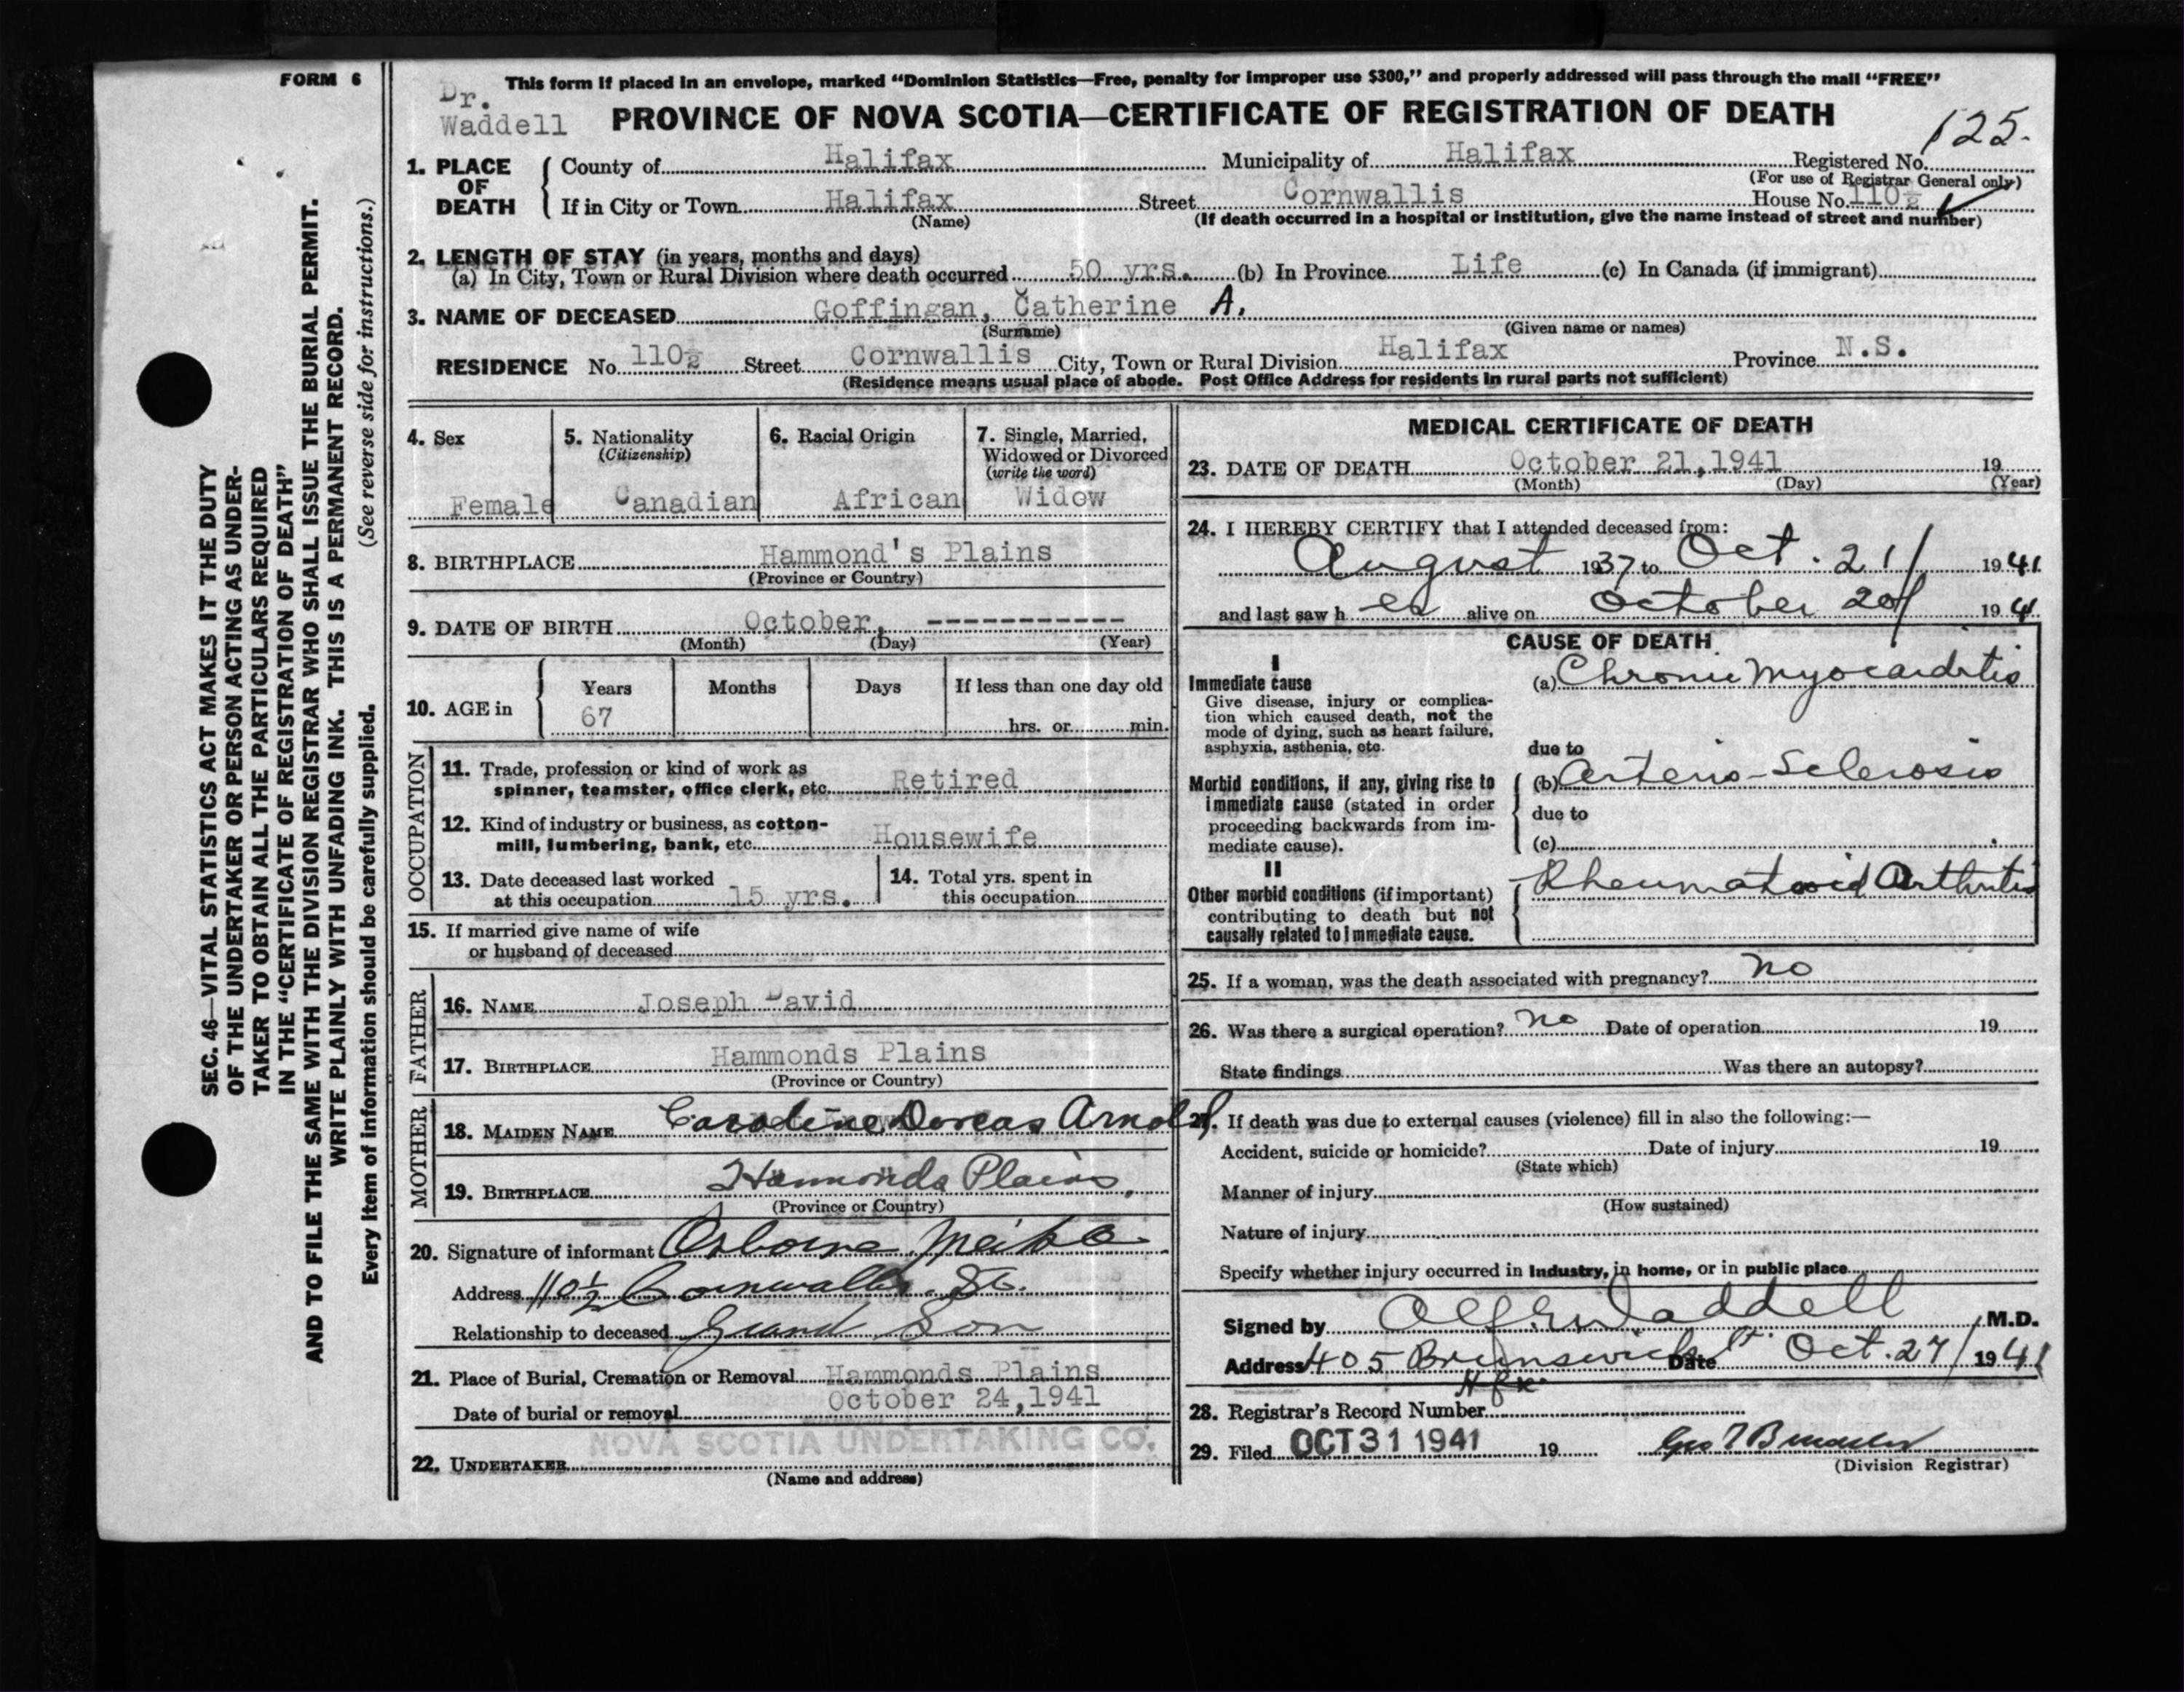 FORM 6
SEC. 46—VITAL STATISTICS ACT MAKES IT THE DUTY
OF THE UNDERTAKER OR PERSON ACTING AS UNDER-
TAKER TO OBTAIN ALL THE PARTICULARS REQUIRED
IN THE "CERTIFICATE OF REGISTRATION OF DEATH"
AND TO FILE THE SAME WITH THE DIVISION REGISTRAR WHO SHALL ISSUE THE BURIAL PERMIT.
WRITE PLAINLY WITH UNFADING INK. THIS IS A PERMANENT RECORD.
Every item of information should be carefully supplied. (See reverse side for instructions.)
This form if placed in an envelope, marked "Dominion Statistics—Free, penalty for improper use $300," and properly addressed will pass through the mail "FREE"
Dr.
Waddell
PROVINCE OF NOVA SCOTIA—CERTIFICATE OF REGISTRATION OF DEATH
125.
1. PLACE OF DEATH
County of Halifax Municipality of Halifax Registered No.
(For use of Registrar General only)
If in City or Town Halifax Street Cornwallis House No. 110½
(Name) (If death occurred in a hospital or institution, give the name instead of street and number)
2. LENGTH OF STAY (in years, months and days)
(a) In City, Town or Rural Division where death occurred 50 yrs. (b) In Province Life (c) In Canada (if immigrant)
3. NAME OF DECEASED Goffingan, Catherine A.
(Surname) (Given name or names)
RESIDENCE No. 110½ Street Cornwallis City, Town or Rural Division Halifax Province N.S.
(Residence means usual place of abode. Post Office Address for residents in rural parts not sufficient)
4. Sex
Female
5. Nationality
(Citizenship)
Canadian
6. Racial Origin
African
7. Single, Married,
Widowed or Divorced
(write the word)
Widow
8. BIRTHPLACE Hammond's Plains
(Province or Country)
9. DATE OF BIRTH October, -----------
(Month) (Day) (Year)
10. AGE in
Years Months Days If less than one day old
67 hrs. or min.
OCCUPATION
11. Trade, profession or kind of work as
spinner, teamster, office clerk, etc. Retired
12. Kind of industry or business, as cotton-
mill, lumbering, bank, etc. Housewife
13. Date deceased last worked
at this occupation 15 yrs.
14. Total yrs. spent in
this occupation
15. If married give name of wife
or husband of deceased
FATHER
16. NAME Joseph David
17. BIRTHPLACE Hammonds Plains
(Province or Country)
MOTHER
18. MAIDEN NAME Caroline Dorcas Arnold
19. BIRTHPLACE Hammonds Plains.
(Province or Country)
20. Signature of informant Osborne
Address 110½ Cornwallis St.
Relationship to deceased Grand Son
21. Place of Burial, Cremation or Removal Hammonds Plains
Date of burial or removal October 24,1941
NOVA SCOTIA UNDERTAKING CO.
22. UNDERTAKER
(Name and address)
MEDICAL CERTIFICATE OF DEATH
23. DATE OF DEATH October 21,1941 19
(Month) (Day) (Year)
24. I HEREBY CERTIFY that I attended deceased from:
August 1937 to Oct. 21/ 1941
and last saw h er alive on October 20/ 1941
CAUSE OF DEATH
I
Immediate cause
Give disease, injury or complica-
tion which caused death, not the
mode of dying, such as heart failure,
asphyxia, asthenia, etc.
(a) Chronic Myocarditis
due to
Morbid conditions, if any, giving rise to
immediate cause (stated in order
proceeding backwards from im-
mediate cause).
(b) Arterio-Sclerosis
due to
(c)
II
Other morbid conditions (if important)
contributing to death but not
causally related to immediate cause.
Rheumatoid Arthritis
25. If a woman, was the death associated with pregnancy? no
26. Was there a surgical operation? no Date of operation 19
State findings Was there an autopsy?
27. If death was due to external causes (violence) fill in also the following:—
Accident, suicide or homicide? Date of injury 19
(State which)
Manner of injury
(How sustained)
Nature of injury
Specify whether injury occurred in industry, in home, or in public place
Signed by Alf E Waddell M.D.
Address 405 Brunswick St. Date Oct. 27/ 1941
Hfx.
28. Registrar's Record Number
29. Filed OCT 31 1941 19
(Division Registrar)